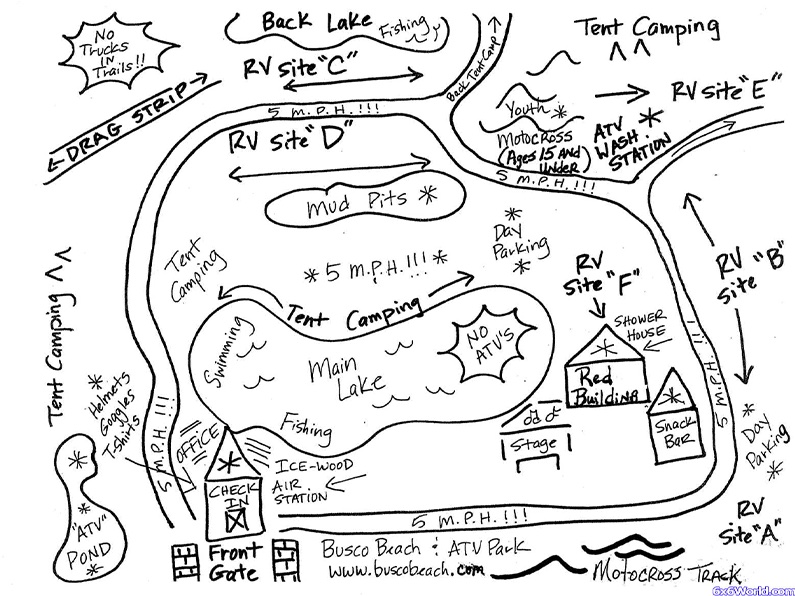 No
Trucks
IN
Trails!!
Back Lake
Fishing
Tent Camping
RV Site "C"
Back Tent Camp
← DRAG STRIP →
5 M.P.H.!!!
Youth *
Motocross
(Ages 15 And
Under)
RV Site "E"
ATV *
WASH
STATION
RV Site "D"
5 M.P.H.!!!
Mud Pits *
*
Day
Parking
*
Tent
Camping
* 5 M.P.H.!!! *
RV
Site "F"
RV
Site "B"
Tent Camping
Tent Camping
Swimming
Main
Lake
NO
ATV'S
SHOWER
HOUSE
*
Red
Building
5 M.P.H.!!!
*
Helmets
Goggles
T-shirts
5 M.P.H.!!!
OFFICE
Fishing
Stage
*
Snack
Bar
*
Day
Parking
*
*
CHECK
IN
ICE-WOOD
AIR
STATION
*
*
"ATV"
POND
*
5 M.P.H.!!!
RV
Site "A"
Front
Gate
Busco Beach & ATV Park
www.buscobeach.com
Motocross Track
6x6World.com